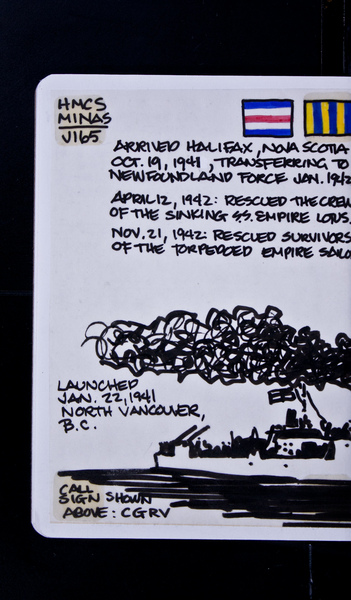 HMCS
MINAS
J165
ARRIVED HALIFAX, NOVA SCOTIA
OCT. 19, 1941, TRANSFERRING TO
NEWFOUNDLAND FORCE JAN. 1942
APRIL 12, 1942: RESCUED THE CREW
OF THE SINKING SS. EMPIRE LOTUS.
NOV. 21, 1942: RESCUED SURVIVORS
OF THE TORPEDOED EMPIRE SAILO
LAUNCHED
JAN. 22, 1941
NORTH VANCOUVER,
B.C.
CALL
SIGN SHOWN
ABOVE: CGRV